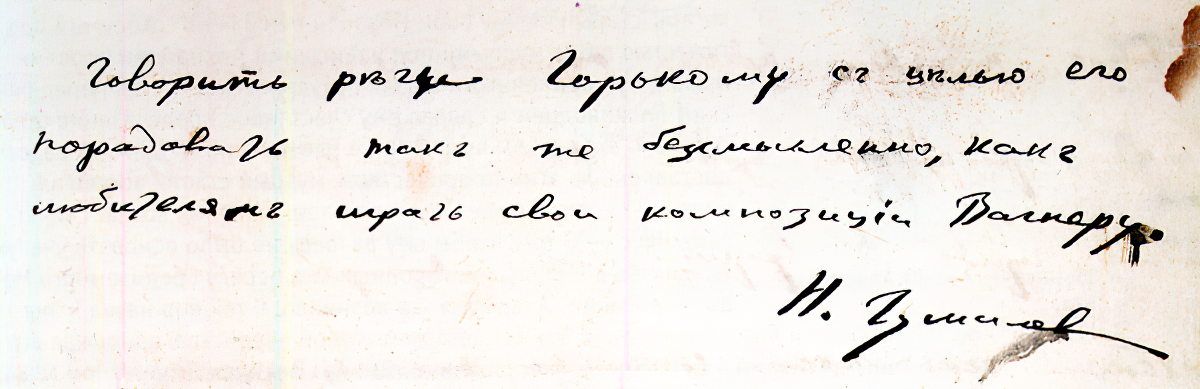 Говорить рѣчи Горькому съ цѣлью его
порадовать такъ же безсмысленно, какъ
любителямъ играть свои композиціи Вагнеру.
Н. Гумилев